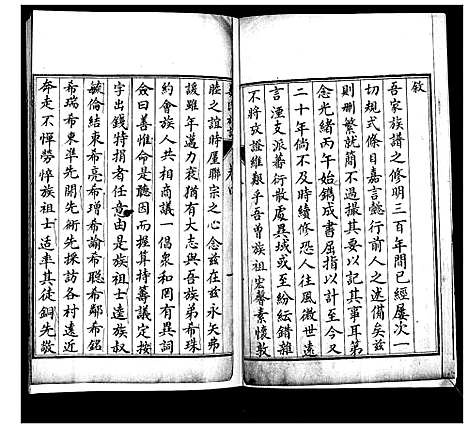 敘
吾家族譜之修明三百年間已經屢次一
切規式條目嘉言懿行前人之述備矣茲
則刪繁就簡不過撮其要以記其事耳第
念光緒丙午始鐫成書屈指以計至今又
二十年倘不及時續修恐人往風微世遠
言湮支派蕃衍散處異域或至紛紜錯雜
不將攷證維艱乎吾曾族祖宏聲素懷敦
睦之誼時屋聯宗之心念茲在茲永矢弗
諼雖年邁力衰猶有大志與吾族弟希珠
約會族人共相商議一倡衆和罔有異詞
僉曰善惟命是聽因而握算持籌議定按
字出錢特捐者任意由是族祖士達族叔
毓倫結東希亮希瑨希諭希聰希鄰希銘
希瑞希東準先開先術先採訪各村遠近
奔走不憚勞悴族祖士造率其徒銅先敬